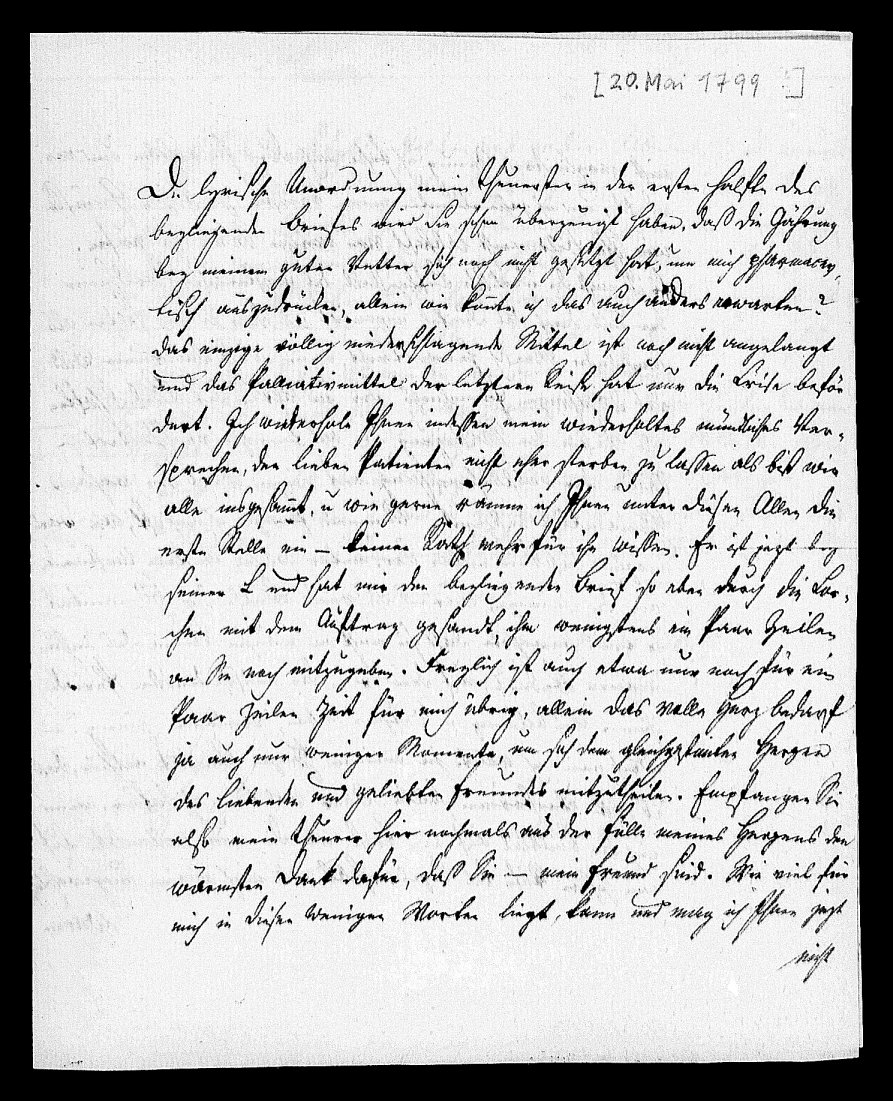 [20. Mai 1799 ?]
Die lyrische Unordnung mein Theuerster in der ersten Hälfte des
beyliegenden Briefes wird Sie schon überzeugt haben, daß die Gährung
bey meinem guten Vetter sich noch nicht gesetzt hat, um mich pharmacev-
tisch auszudrücken, allein wie konnte ich das auch anders erwarten?
Das einzige völlig niederschlagende Mittel ist noch nicht angelangt
und das Palliativmittel der letzteren Reise hat nur die Crise beför
dert. Ich wiederhole Ihnen indessen mein wiederholtes mündliches Ver-
sprechen, den lieben Patienten nicht eher sterben zu lassen als bis wir
alle insgesammt, u wie gerne räume ich Ihnen unter diesen Allen die
erste Stelle ein – keinen Rath mehr für ihn wissen. Er ist jezt bey
seiner L und hat mir den beyliegenden Brief so eben durch die
chen mit dem Auftrag gesandt, ihm wenigstens ein Paar Zeilen
an Sie noch mitzugeben. Freylich ist auch etwa nur noch für ein
Paar Zeilen Zeit für mich übrig, allein das volle Herz bedarf
ja auch nur weniger Momente, um sich dem gleichgestimten Herzen
des liebenden und geliebten Freundes mitzutheilen. Empfangen Sie
also mein Theurer hier nochmals aus der Fülle meines Herzens den
wärmsten Dank dafür, daß Sie – mein Freund sind. Wie viel für
mich in diesen wenigen Worten liegt, kann und mag ich Ihnen jezt
nicht